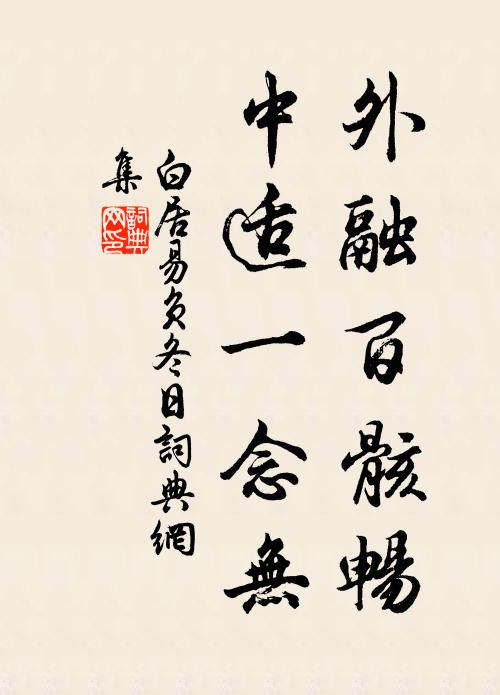 外融百骸暢
中适一念無
白居易負冬日詞典網
集
詞典網印